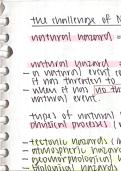 the challenge of N
natural hazard
natural hazard
- a natural event
it has threaten to
- when it has no th
natural event.
types of natural
physical processes
- tectonic hazards
- atmospheric hazard
- geomorphological
- biological hazard